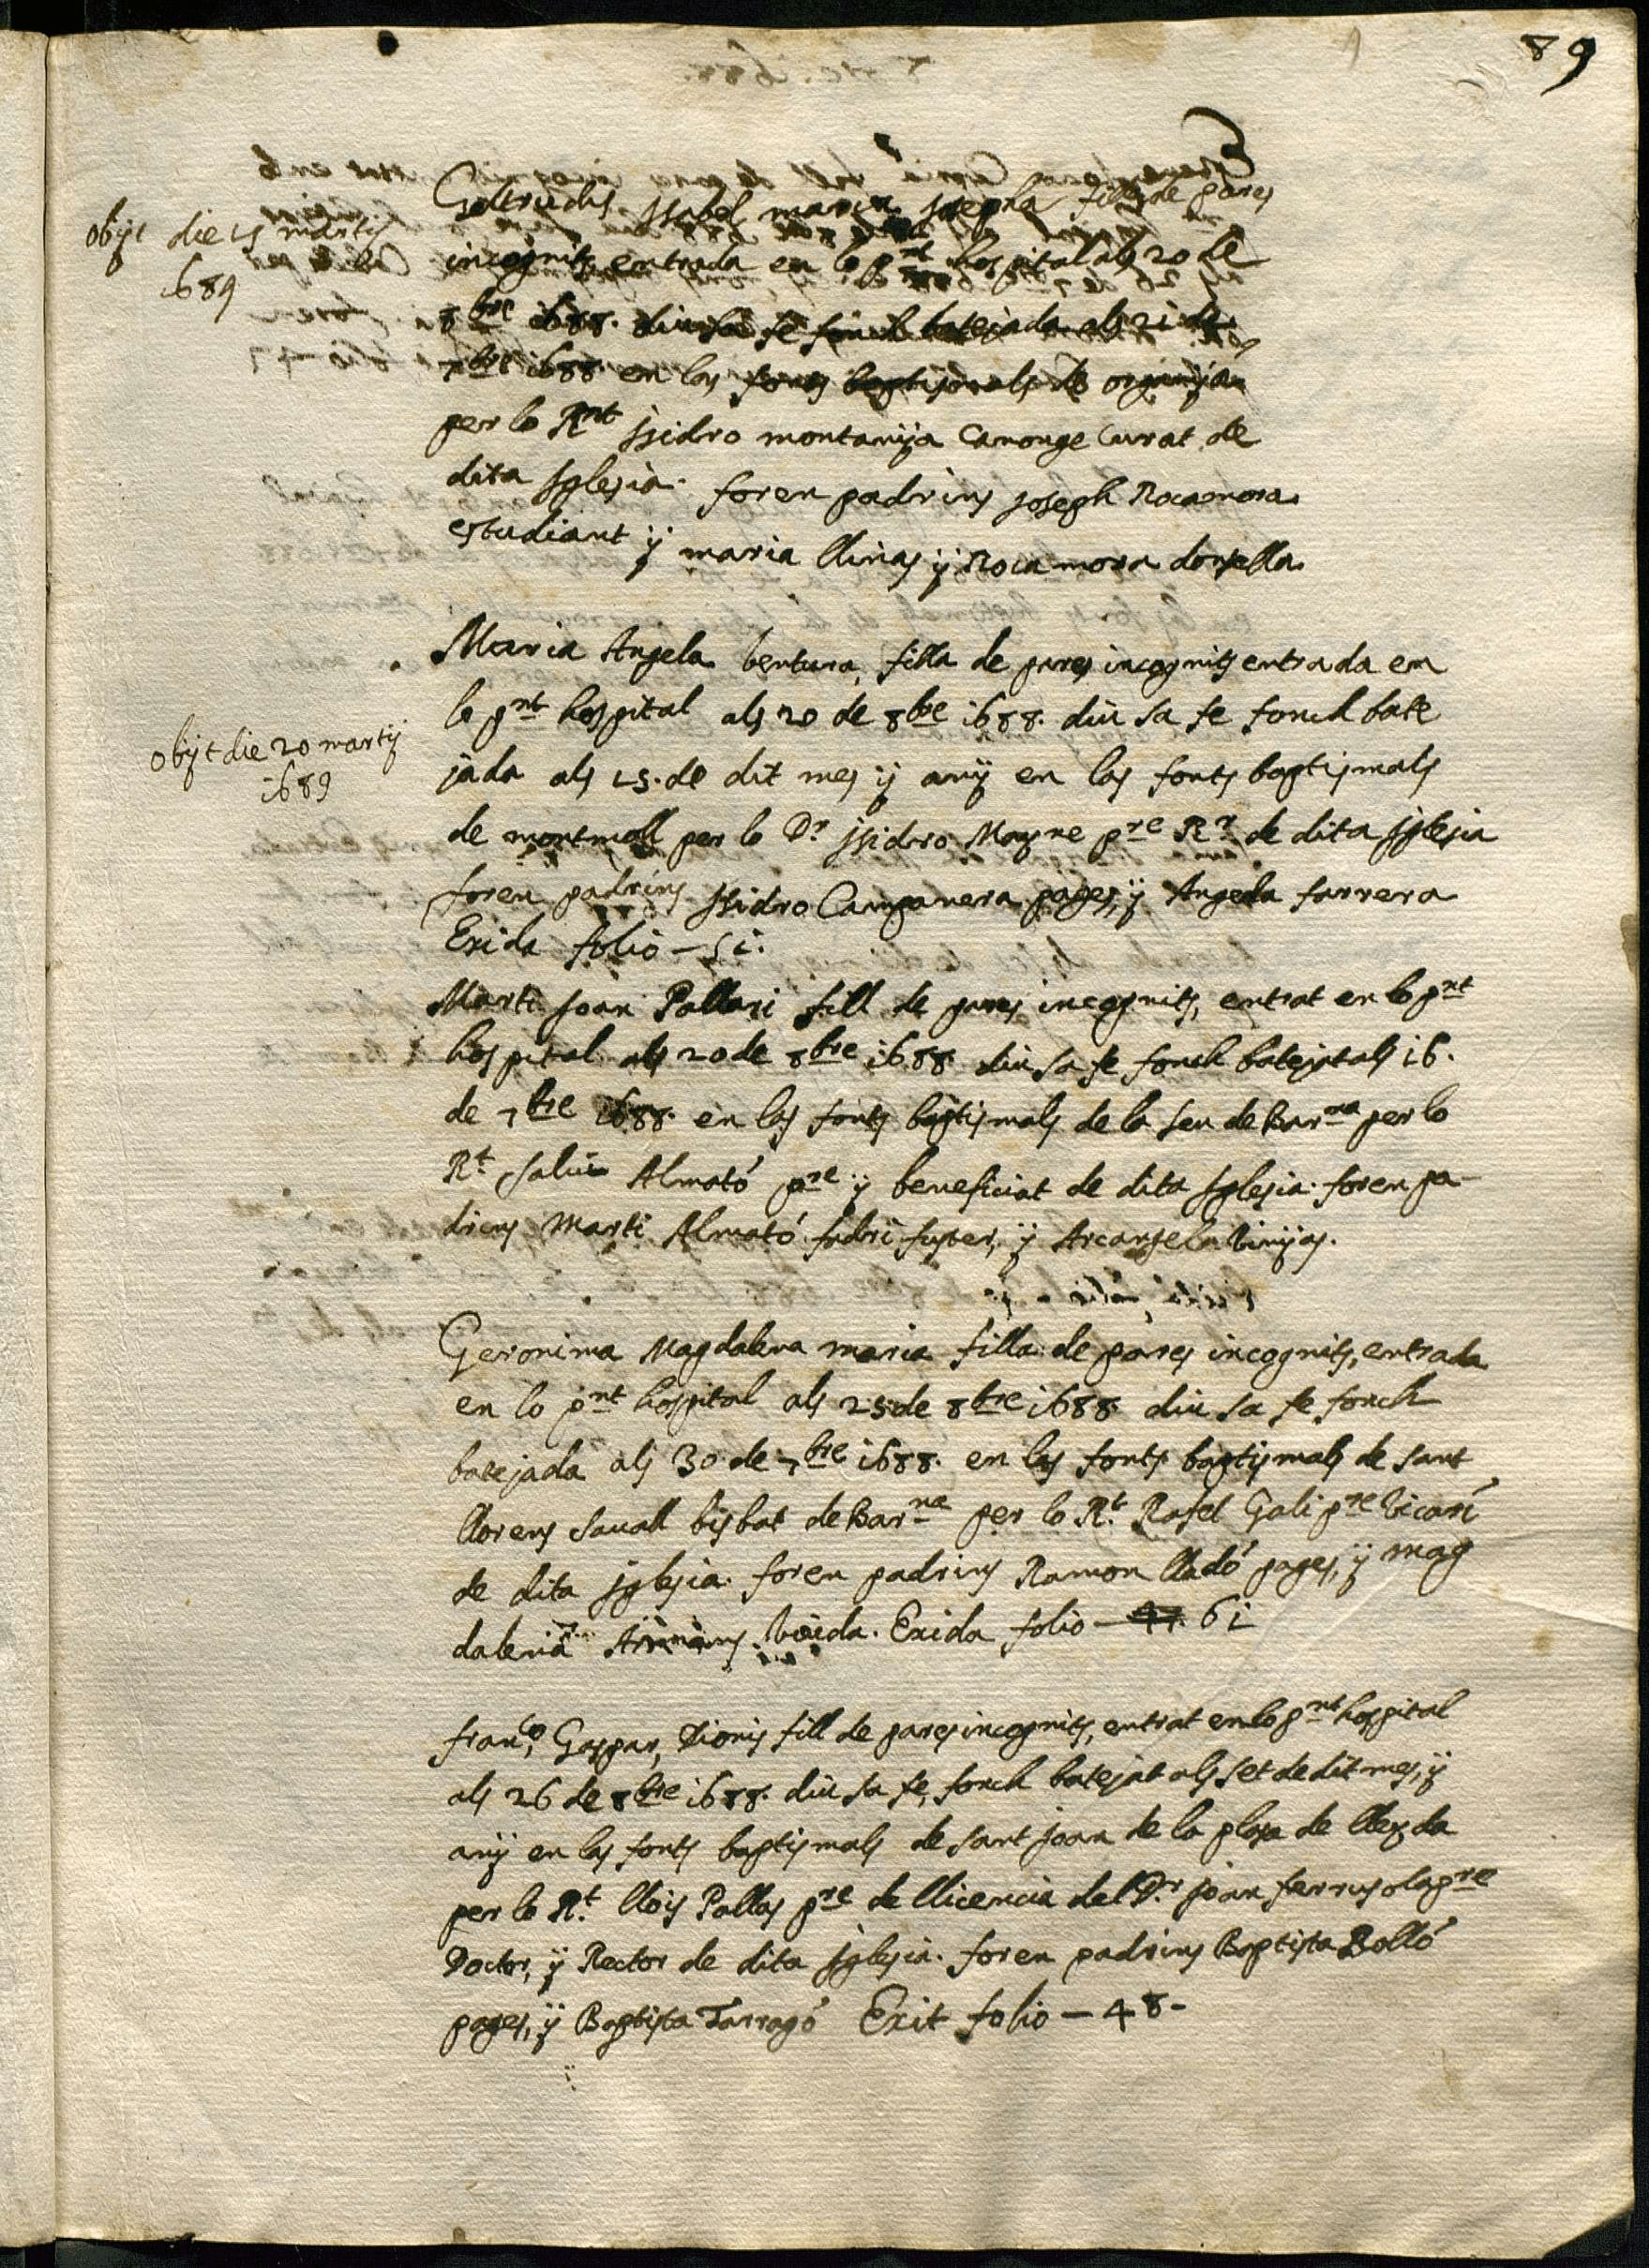 89
Geltrudis Isabel maria Josepha filla de pares
incognits, entrada en lo pnt hospital als 20 de
8bre 1688. diu sa fe fonch batejada als 21 de
7bre 1688 en las fonts baptismals de organyá
per lo Rnt Isidro montanya Canonge Curat de
dita Iglesia. foren padrins Joseph Rocamora
estudiant y maria llinas y Rocamora donsella.
obijt die 15 martij
1689
Maria Angela bentura, filla de pares incognits entrada en
lo pnt hospital als 20 de 8bre 1688. diu sa fe fonch bate
jada als 15. de dit mes y anÿ en las fonts baptismals
de montmall per lo Dr Isidro Mayne pre Rr de dita Iglesia
foren padrins Isidro Campanera pages, y Angela farrera
Exida folio - 51.
obijt die 20 martij
1689
Marti Joan Pallari fill de pares incognits, entrat en lo pnt
hospital als 20 de 8bre 1688 diu sa fe fonch batejat als 16.
de 7bre 1688. en las fonts baptismals de la seu de Barna per lo
Rt. Salui Almató pre y beneficiat de dita Iglesia. foren pa-
drins Marti Almató fadri fuster, y Arcangela Vinyas.
Geronima Magdalena maria filla de pares incognits, entrada
en lo pnt hospital als 25 de 8bre 1688 diu sa fe fonch
batejada als 30 de 7bre 1688. en las fonts baptismals de sant
llorens sauall bisbat de Barna per lo Rt. Rafel Gali pre Vicari
de dita Iglesia. foren padrins Ramon lladó pages, y mag
dalena viuda. Exida folio - 61
franco, Gaspar, Dionis fill de pares incognits, entrat en lo pnt hospital
als 26 de 8bre 1688. diu sa fe, fonch batejat als set de dit mes, y
anÿ en las fonts baptismals de sant Joan de la plasa de lleyda
per lo Rt. llois Pallas pre de llicencia del Dr. Joan ferrusola pre
Doctor, y Rector de dita Iglesia. foren padrins Baptista Bolló
pages, y Baptista Tarragó Exit folio - 48 -